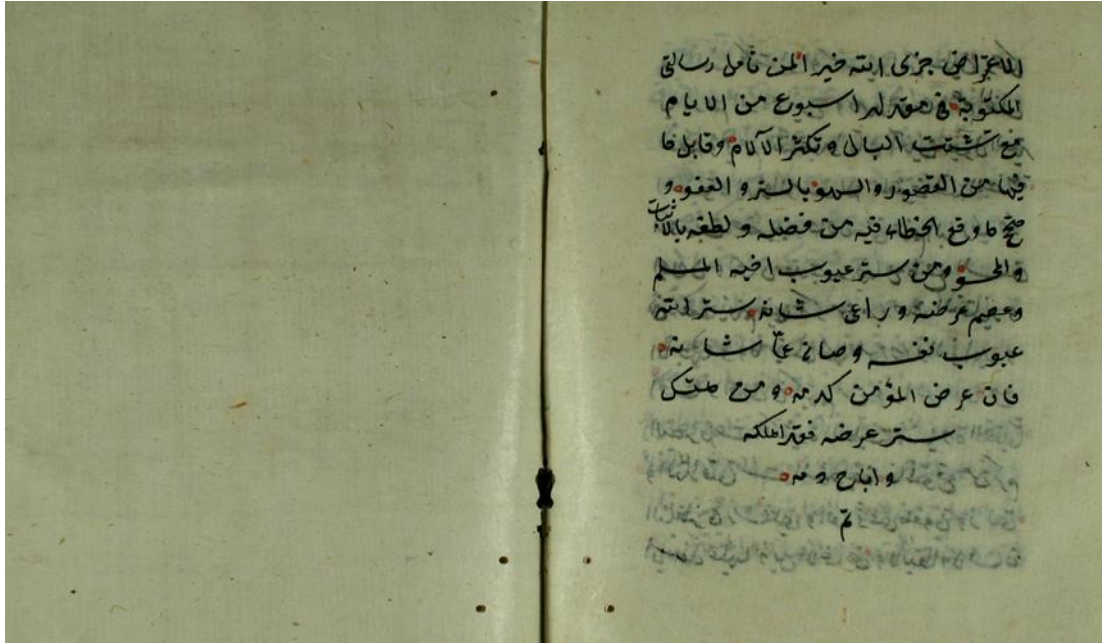 الاعتراض جزى الله خير المن قامل رسالتي
المكتوبة في مقدار اسبوع من الايام
مع تشتت البال وتكثر الآلام وقابل ما
فيها من القصور والسهو بالستر والعفو و
صحح ما وقع الخطاء فيه من فضله ولطفه بالاثبات
والمحو ومن ستر عيوب اخيه المسلم
وعصم عرضه وراعى شانه ستر الله
عيوب نفسه وصانه عمّا شانه
فان عرض المؤمن كدمه ومن هتك
ستر عرضه فقد اهلكه
واباح دمه
تم